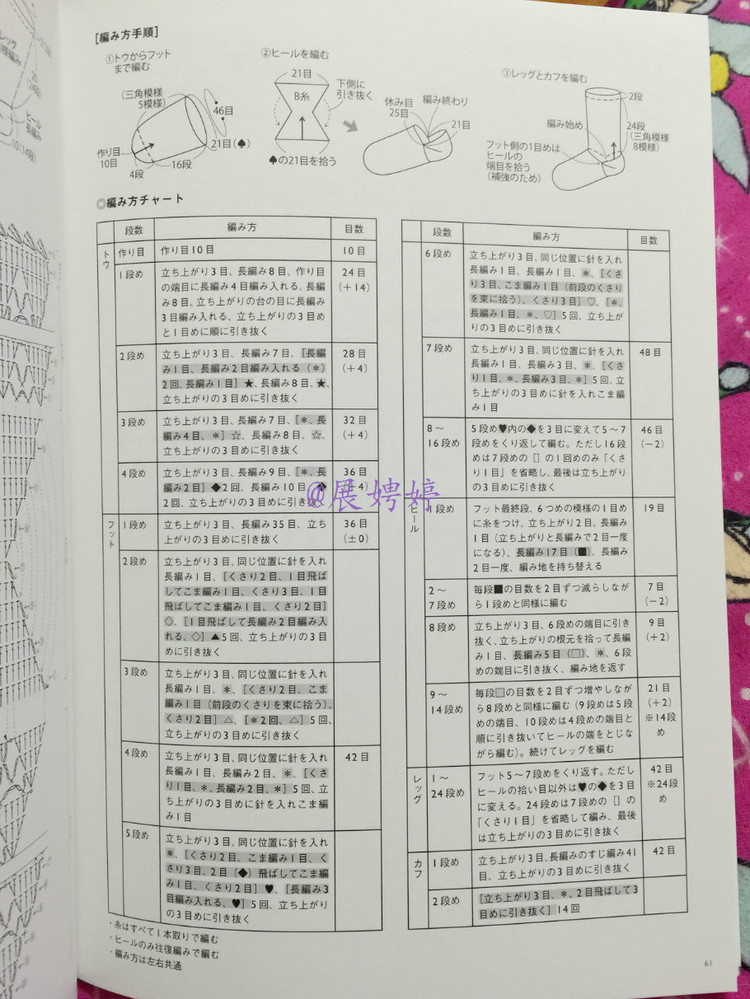 [編み方手順]
①トウからフット
まで編む
(三角模様
5模様)
46目
作り目
10目
4段
16段
21目(♠)
②ヒールを編む
21目
B糸
下側に
引き抜く
♠の21目を拾う
休み目
25目
編み終わり
21目
③レッグとカフを編む
2段
編み始め
24段
(三角模様
8模様)
フット側の1目めは
ヒールの
端目を拾う
(補強のため)
◎編み方チャート
段数 編み方 目数
トウ
作り目 作り目10目 10目
1段め 立ち上がり3目、長編み8目、作り目 24目
の端目に長編み4目編み入れる、長編 (+14)
み8目、立ち上がりの台の目に長編み
3目編み入れる、立ち上がりの3目め
と1目めに順に引き抜く
2段め 立ち上がり3目、長編み7目、[長編 28目
み1目、長編み2目編み入れる(*) (+4)
2回、長編み1目]★、長編み8目、★、
立ち上がりの3目めに引き抜く
3段め 立ち上がり3目、長編み7目、[*、長 32目
編み4目、*]☆、長編み8目、☆、 (+4)
立ち上がりの3目めに引き抜く
4段め 立ち上がり3目、長編み9目、[*、長 36目
編み2目]◆2回、長編み10目、◆
2回、立ち上がりの3目めに引き抜く
フット
1段め 立ち上がり3目、長編み35目、立ち 36目
上がりの3目めに引き抜く (±0)
2段め 立ち上がり3目、同じ位置に針を入れ
長編み1目、[くさり2目、1目飛ば
してこま編み1目、くさり3目、1目
飛ばしてこま編み1目、くさり2目]
◇、[1目飛ばして長編み2目編み入
れる、◇]▲5回、立ち上がりの3目
めに引き抜く
3段め 立ち上がり3目、同じ位置に針を入れ
長編み1目、*、[くさり2目、こま
編み1目(前段のくさりを束に拾う)、
くさり2目]△、[*2回、△]5回、
立ち上がりの3目めに引き抜く
4段め 立ち上がり3目、同じ位置に針を入れ 42目
長編み1目、長編み2目、*、[くさ
り1目、*、長編み2目、*]5回、立
ち上がりの3目めに針を入れこま編
み1目
5段め 立ち上がり3目、同じ位置に針を入れ
*、[くさり2目、こま編み1目、く
さり3目、2目(◆)飛ばしてこま編
み1目、くさり2目]♥、[長編み3
目編み入れる、♥]5回、立ち上がり
の3目めに引き抜く
・糸はすべて1本取りで編む
・ヒールのみ往復編みで編む
・編み方は左右共通
段数 編み方 目数
6段め 立ち上がり3目、同じ位置に針を入れ
長編み1目、長編み1目、*、[くさ
り3目、こま編み1目(前段のくさり
を束に拾う)、くさり3目]♡、[*、
長編み1目、*、♡]5回、立ち上が
りの3目めに引き抜く
7段め 立ち上がり3目、同じ位置に針を入れ 48目
長編み1目、長編み3目、*、[くさ
り1目、*、長編み3目、*]5回、立
ち上がりの3目めに針を入れこま編
み1目
8〜 5段め♥内の◆を3目に変えて5〜7 46目
16段め 段めをくり返して編む。ただし16段 (−2)
めは7段めの[]の1回めのみ「くさ
り1目」を省略し、最後は立ち上がり
の3目めに引き抜く
ヒール
1段め フット最終段、6つめの模様の1目め 19目
に糸をつけ、立ち上がり2目、長編み
1目(立ち上がりと長編みで2目一度
になる)、長編み17目(■)、長編み
2目一度、編み地を持ち替える
2〜 毎段■の目数を2目ずつ減らしなが 7目
7段め ら1段めと同様に編む (−2)
8段め 立ち上がり3目、6段めの端目に引き 9目
抜く、立ち上がりの根元を拾って長編 (+2)
み1目、長編み5目(□)、*、6段
めの端目に引き抜く、編み地を返す
9〜 毎段□の目数を2目ずつ増やしなが 21目
14段め ら8段めと同様に編む(9段めは5段 (+2)
めの端目、10段めは4段めの端目と ※14段
順に引き抜いてヒールの端をとじな め
がら編む)。続けてレッグを編む
レッグ
1〜 フット5〜7段めをくり返す。ただし 42目
24段め ヒールの拾い目以外は♥の◆を3目 ※24段
に変える。24段めは7段めの[]の め
「くさり1目」を省略して編み、最後
は立ち上がりの3目めに引き抜く
カフ
1段め 立ち上がり3目、長編みのすじ編み41 42目
目、立ち上がりの3目めに引き抜く
2段め [立ち上がり3目、*、2目飛ばして3
目めに引き抜く]14回
@展娉婷
61